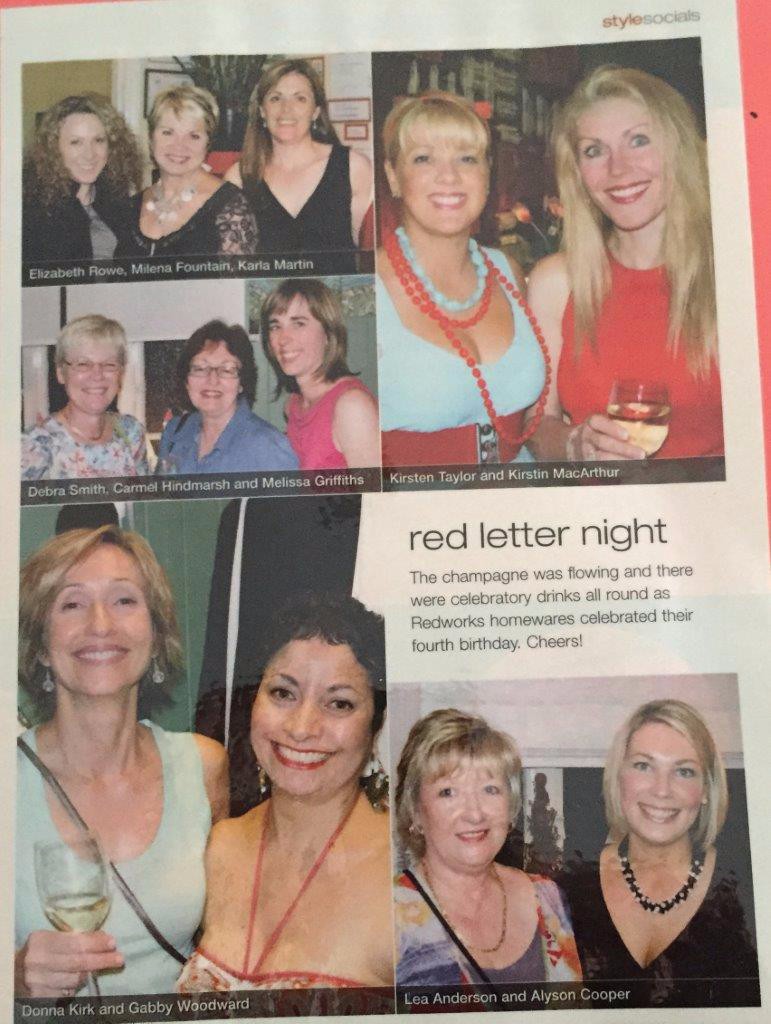 stylesocials
Elizabeth Rowe, Milena Fountain, Karla Martin
Debra Smith, Carmel Hindmarsh and Melissa Griffiths
Kirsten Taylor and Kirstin MacArthur
red letter night
The champagne was flowing and there
were celebratory drinks all round as
Redworks homewares celebrated their
fourth birthday. Cheers!
Donna Kirk and Gabby Woodward
Lea Anderson and Alyson Cooper